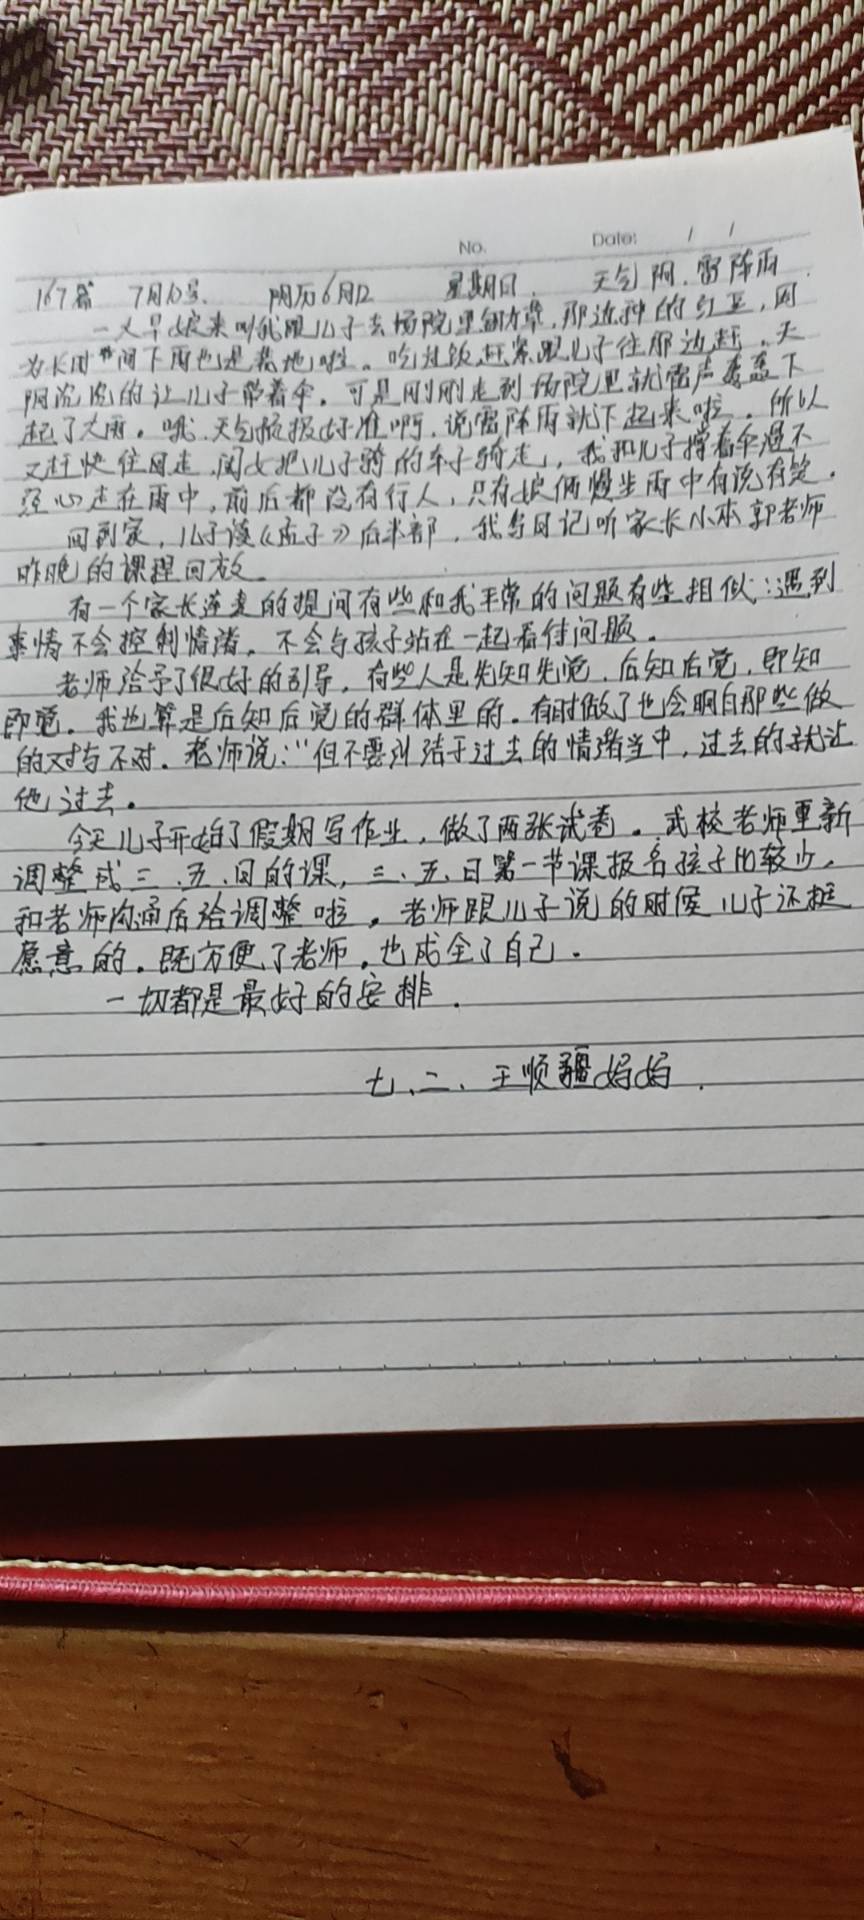 No.    Date:    /    /
167篇 7月10号. 阴历6月12 星期日. 天气阴.雷阵雨.
一大早娘来叫我跟儿子去场院里锄草,那边种的红豆,因
为长时间下雨也是荒地啦。吃过饭赶紧跟儿子往那边赶.天
阴沉沉的让儿子带着伞。可是刚刚走到场院里就雷声轰轰下
起了大雨。哦.天气预报好准啊.说雷阵雨就下起来啦.所以
又赶快往回走.闺女把儿子骑的车子骑走了,我和儿子撑着伞漫不
经心走在雨中,前后都没有行人,只有娘俩慢步雨中有说有笑.
回到家,儿子读《孟子》后半部,我写日记听家长小本郭老师
昨晚的课程回放。
有一个家长连麦的提问有些和我平常的问题有些相似:遇到
事情不会控制情绪.不会与孩子站在一起看待问题.
老师给予了很好的引导,有些人是先知先觉.后知后觉,即知
即觉。我也算是后知后觉的群体里的.有时做了也会明白那些做
的对与不对.老师说:“但不要纠结于过去的情绪当中,过去的就让
他过去。
今天儿子开始了假期写作业,做了两张试卷。武校老师重新
调整成三.五.日的课,三.五.日第一节课报名孩子比较少.
和老师沟通后给调整啦。老师跟儿子说的时候儿子还挺
愿意的.既方便了老师,也成全了自己.
一切都是最好的安排.
七.二.王顺疆妈妈.